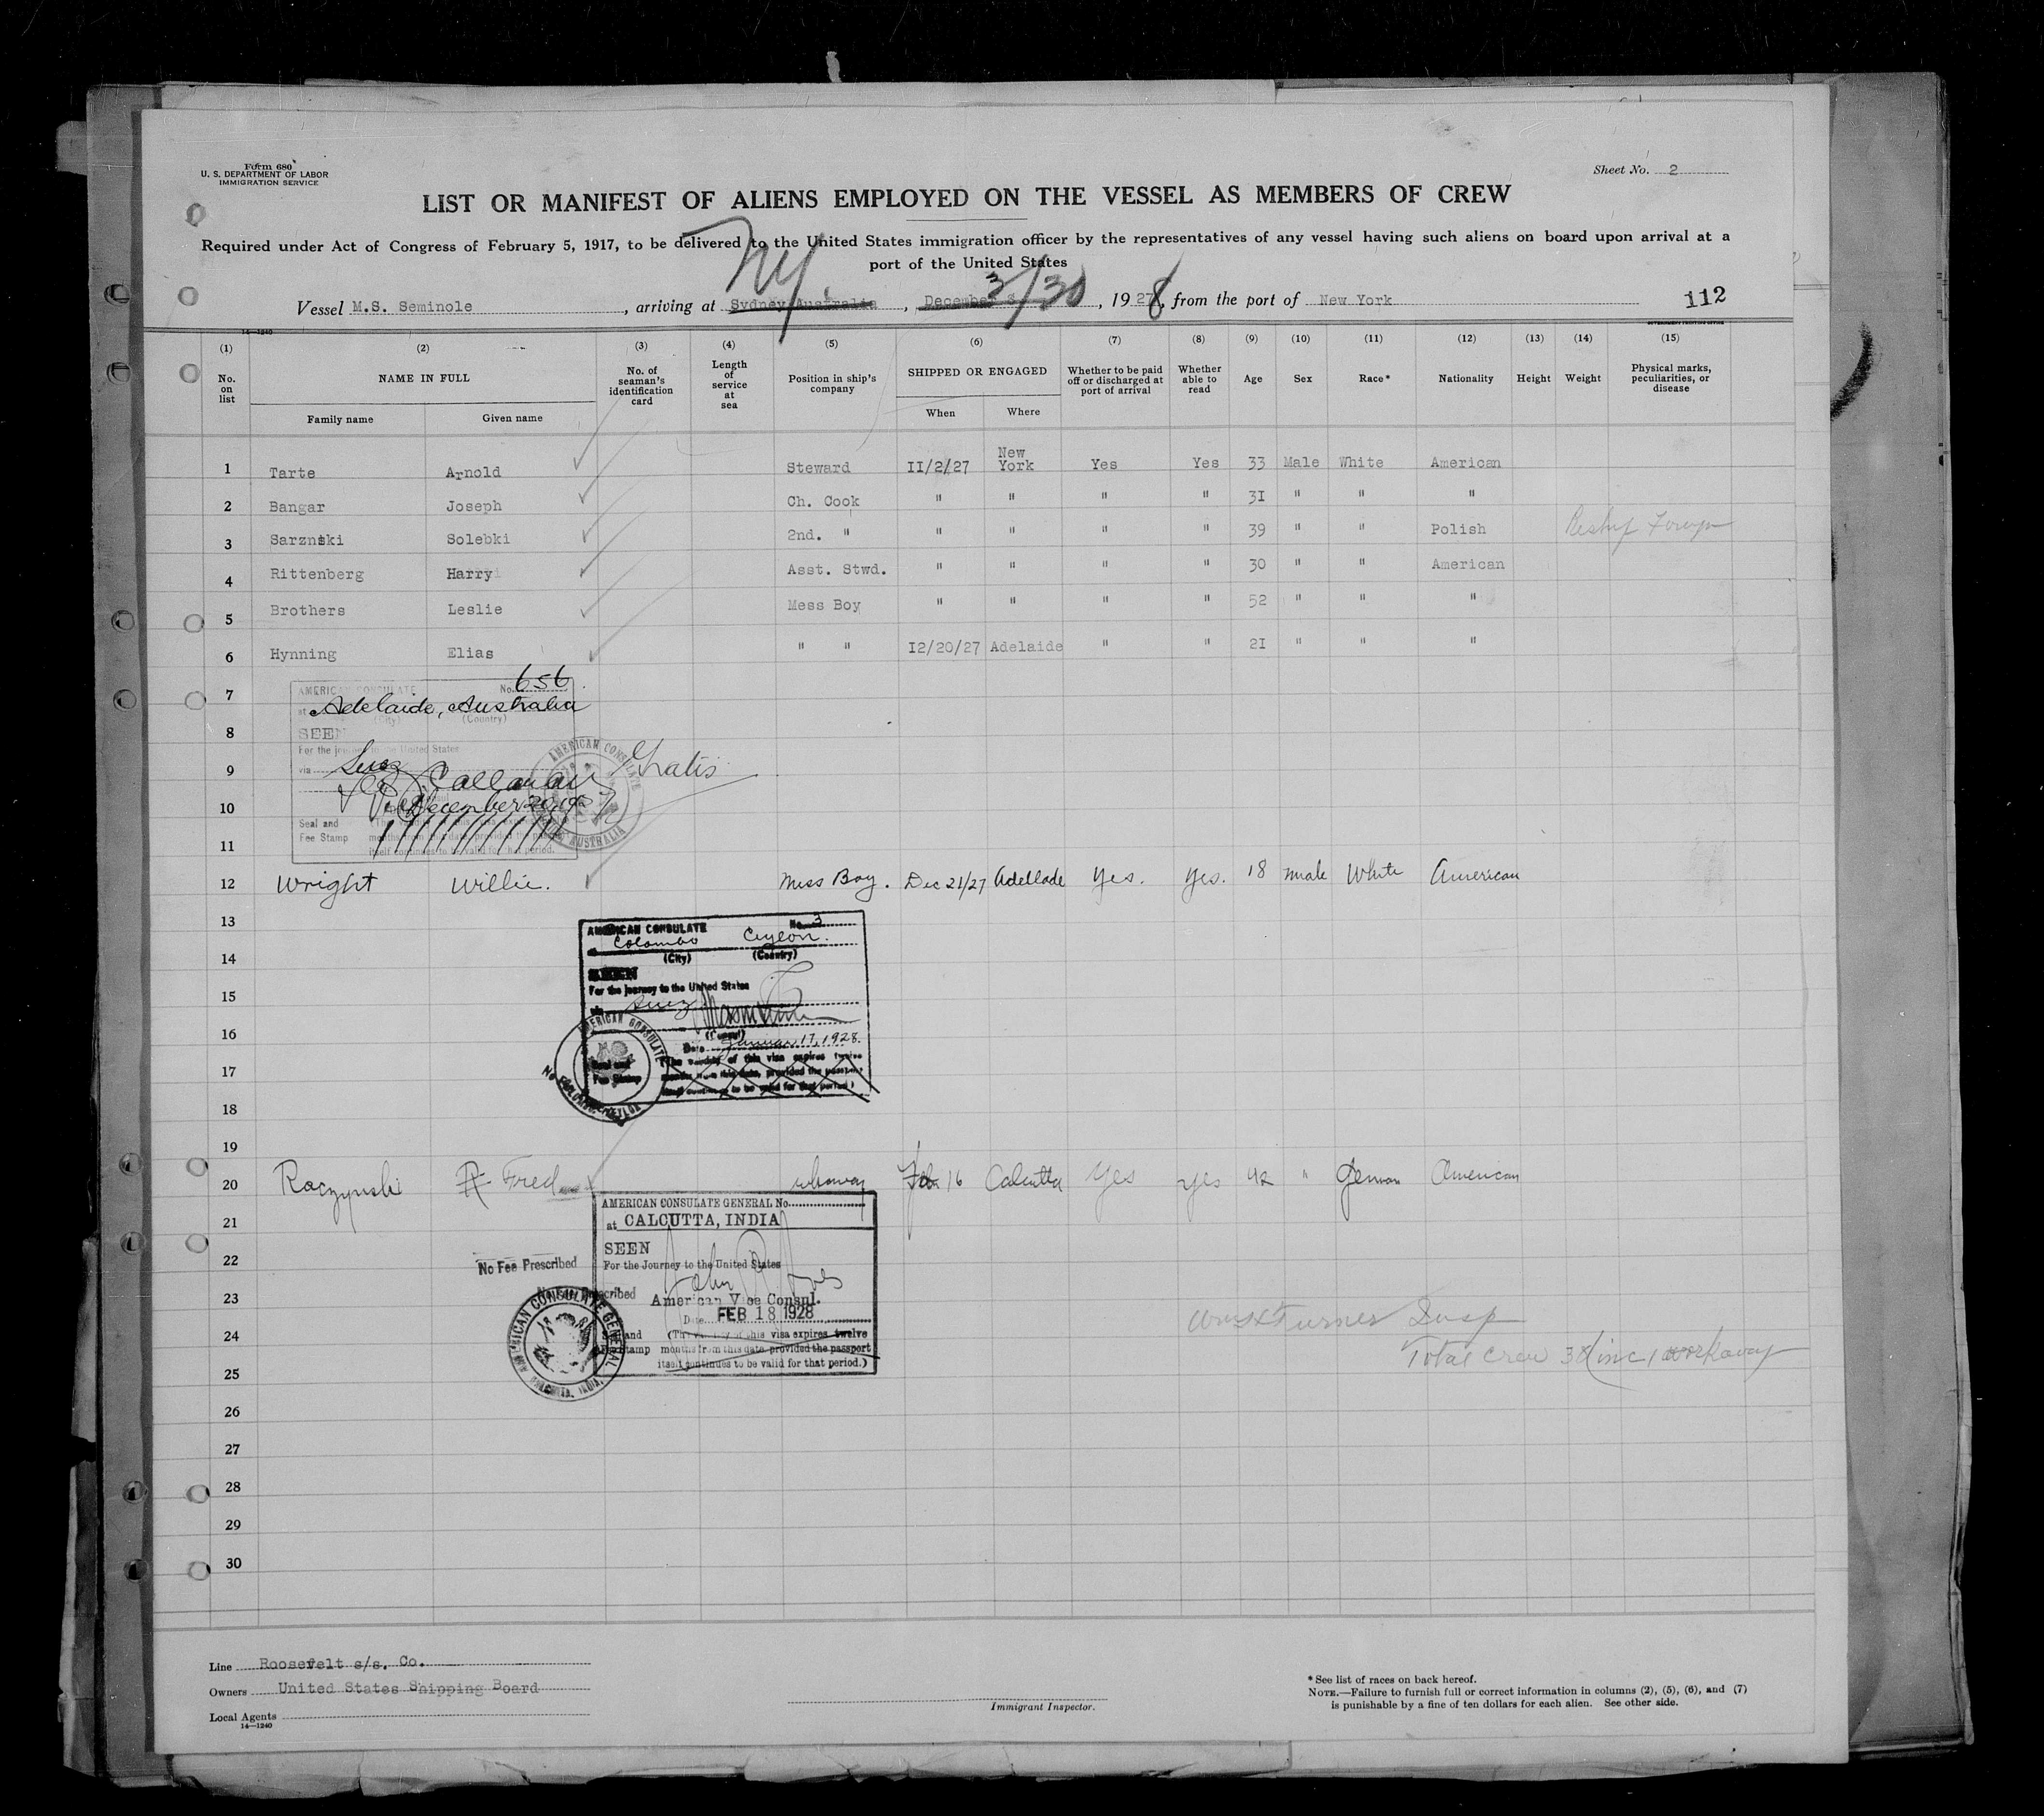 Form 680
U. S. DEPARTMENT OF LABOR
IMMIGRATION SERVICE
Sheet No. 2
LIST OR MANIFEST OF ALIENS EMPLOYED ON THE VESSEL AS MEMBERS OF CREW
Required under Act of Congress of February 5, 1917, to be delivered to the United States immigration officer by the representatives of any vessel having such aliens on board upon arrival at a
port of the United States
Vessel M.S. Seminole, arriving at Sydney Australia NY, December 3/30, 1928, from the port of New York 112
14-1240
(1) (2) (3) (4) (5) (6) (7) (8) (9) (10) (11) (12) (13) (14) (15)
No. on list NAME IN FULL No. of seaman's identification card Length of service at sea Position in ship's company SHIPPED OR ENGAGED Whether to be paid off or discharged at port of arrival Whether able to read Age Sex Race* Nationality Height Weight Physical marks, peculiarities, or disease
Family name Given name When Where
1 Tarte Arnold Steward II/2/27 New York Yes Yes 33 Male White American
2 Bangar Joseph Ch. Cook " " " " 3I " " "
3 Sarznski Solebki 2nd. " " " " " 39 " " Polish Reship Foreign
4 Rittenberg Harry Asst. Stwd. " " " " 30 " " American
5 Brothers Leslie Mess Boy " " " " 52 " " "
6 Hynning Elias " " I2/20/27 Adelaide " " 2I " " "
7
AMERICAN CONSULATE No. 656
at Adelaide, Australia
(City) (Country)
8
SEEN
For the journey to the United States
9
via Suez Gratis
Callanan
10
December 20, 1927
Seal and
Fee Stamp
11
itself continues to be valid for that period.
AMERICAN CONSULATE
AUSTRALIA
12 Wright Willie. Mess Boy. Dec 21/27 Adellade Yes. Yes. 18 male White American
13
AMERICAN CONSULATE No. 3
at Colombo Ceylon.
14
(City) (Country)
SEEN
For the journey to the United States
15
via Suez
16
(Consul)
Date January 17, 1928.
(The validity of this visa expires twelve
17
months from this date, provided the passport
itself continues to be valid for that period.)
Seal and
Fee Stamp
AMERICAN CONSULATE
COLOMBO, CEYLON
18
19
20 Raczynski Fred wkaway Feb 16 Calcutta Yes yes 42 " German American
AMERICAN CONSULATE GENERAL No.
21
at CALCUTTA, INDIA
SEEN
22
No Fee Prescribed
For the Journey to the United States
23
No Fee Prescribed
American Vice Consul.
Date FEB 18 1928
24
Seal and (The validity of this visa expires twelve
Fee Stamp months from this date provided the passport
itself continues to be valid for that period.)
AMERICAN CONSULATE GENERAL
CALCUTTA, INDIA.
Turner Insp
Total crew 38 (inc 1 workaway
25
26
27
28
29
30
Line Roosevelt s/s. Co.
Owners United States Shipping Board
Local Agents
14-1240
Immigrant Inspector.
* See list of races on back hereof.
NOTE.—Failure to furnish full or correct information in columns (2), (5), (6), and (7)
is punishable by a fine of ten dollars for each alien. See other side.